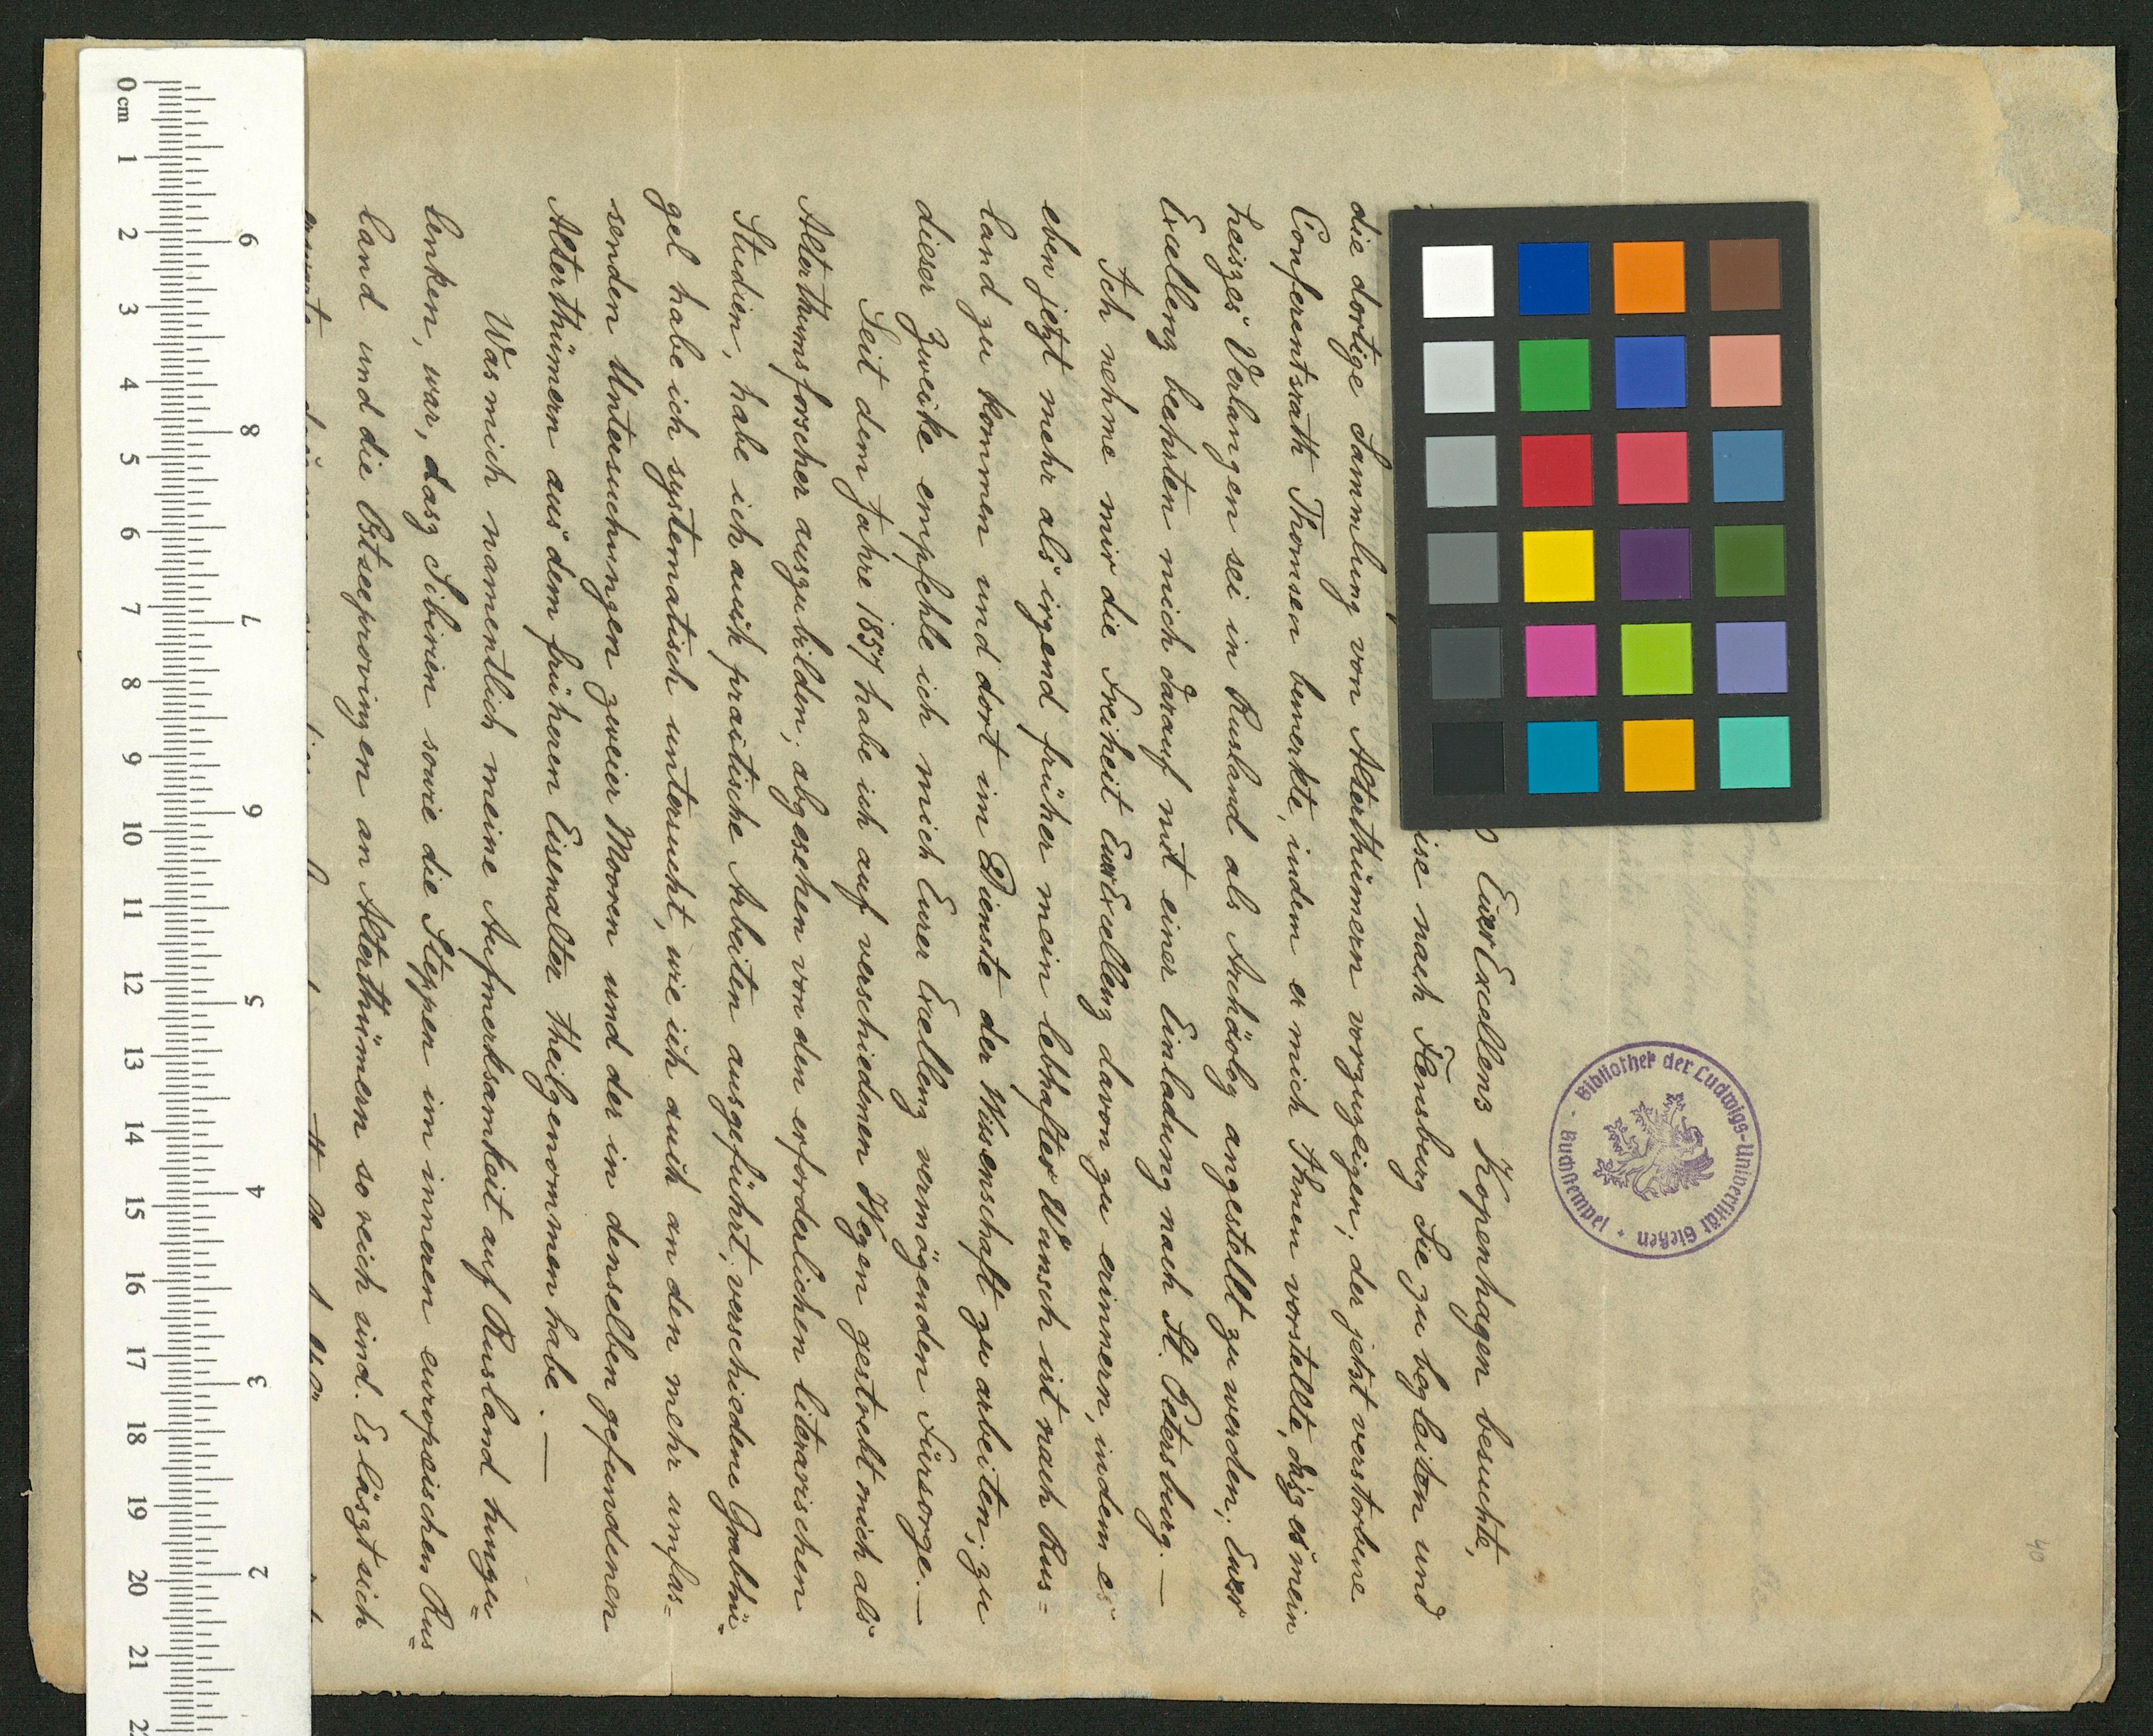 Euer Excellens Kopenhagen besuchte,
ise nach Flensburg Sie zu begleiten und
die dortige Sammlung von Alterthümern vorzuzeigen; der jetzt verstorbene
Conferentsrath Thomsen bemerkte, indem er mich Ihnen vorstellte, dasz es mein
heiszes Verlangen sei in Rusland als Archäolog angestellt zu werden; Euer
Excellenz beehrten mich darauf mit einer Einladung nach St. Petersburg. —
Ich nehme mir die Freiheit Euer Excellenz davon zu erinnern, indem es
eben jetzt mehr als irgend früher mein lebhafter Wunsch ist nach Rus=
land zu kommen und dort im Dienste der Wissenschaft zu arbeiten; zu
dieser Zwecke empfehle ich mich Eurer Excellenz vermögenden Fürsorge. —
Seit dem Jahre 1857 habe ich auf verschiedenen Wegen gestrebt mich als
Alterthumsforscher auszubilden; abgesehen von den erforderlichen literarischen
Studien, habe ich auch practische Arbeiten ausgeführt; verschiedene Grabhü=
gel habe ich systematisch untersucht, wie ich auch an den mehr umfas=
senden Untersuchungen zweier Mooren und der in denselben gefundenen
Alterthümern aus dem früheren Eisenalter theilgenommen habe. —
Was mich namentlich meine Aufmerksamkeit auf Rusland hinzu=
lenken, war, dasz Sibirien sowie die Steppen im inneren europeischen Rus=
land und die Ostseeprovinzen an Alterthümern so reich sind. Es läszt sich
Bibliothek der Ludwigs-Universität Gießen · Buchstempel ·
40
0 cm 1 2 3 4 5 6 7 8 9 10 11 12 13 14 15 16 17 18 19 20 21
9 8 7 6 5 4 3 2